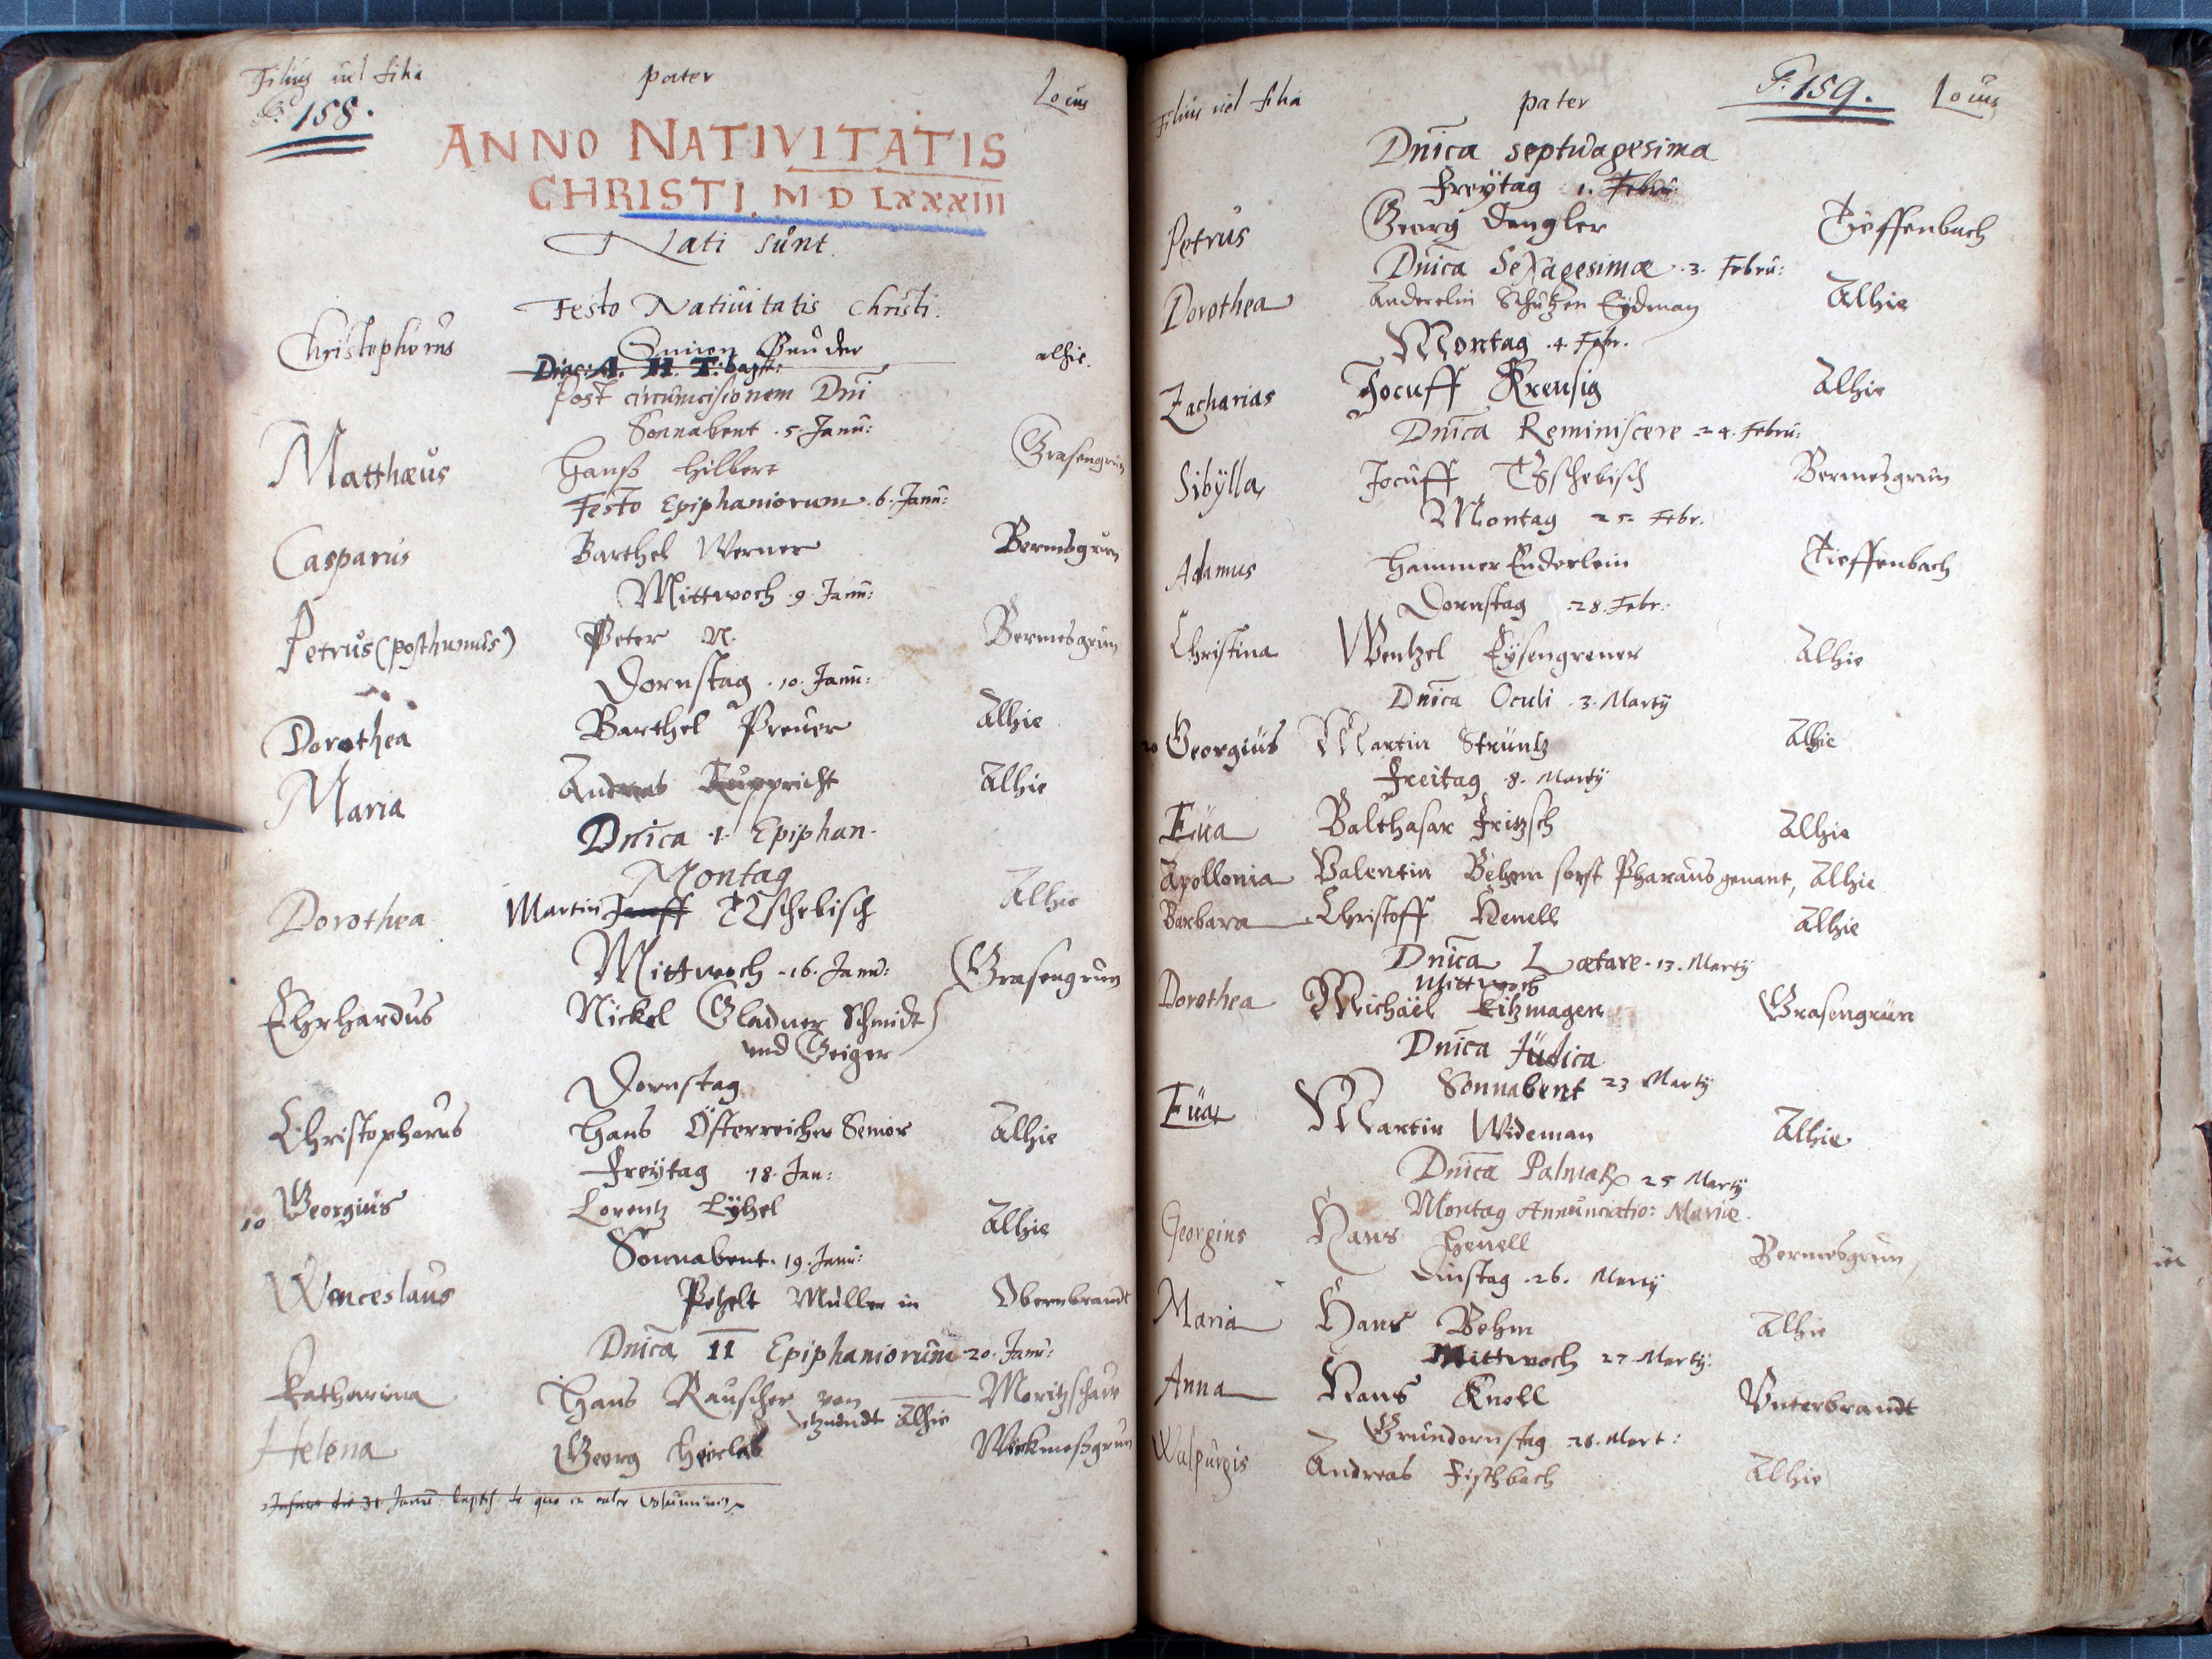 Filius uel filia pater Locus
F. 158.
ANNO NATIVITATIS
CHRISTI. M D LXXXIII
Nati sunt.
Festo Natiuitatis Christi.
Christophorus Simon Gruder alhie.
Diac: A. H. T: bapt:
post circumcisionem Dni
Sonnabent .5. Janu:
Matthæus Hanß Hilbert Grasengrun
Festo Epiphaniorum .6. Janu:
Casparus Barthel Werner Bermesgrun
Mittwoch .9. Janu:
Petrus (posthumus) Peter N. Bermesgrun
Dornstag .10. Janu:
Dorothea Barthel Preuer Alhie
Maria Andreas Rupricht Alhie
Dnica .1. Epiphan.
Montag
Dorothea Martin Jocuff Tzschebisch Alhie
Mittwoch .16. Janu:
Ehrhardus Nickel Gladner Schmidt Grasengrun
und Geiger
Dornstag
Christophorus Hans Österreicher Senior Alhie
Freÿtag .18. Jan:
10 Georgius Lorentz Alhie
Sonnabent .19. Janu:
Wenceslaus Petzelt Müller in Obernbrandt
Dnica II Epiphaniorum 20. Janu:
Katharina Hans Rauscher von Moritzschaw
itzundt Alhie
Helena Georg Wickmeßgrun
die 31 Janu: de quo in

Filius uel filia pater F. 159. Locus
Dnica septuagesima
Freÿtag 1. Febru:
Petrus Georg Dengler Tieffenbach
Dnica Sexagesimæ .3. Febru:
Dorothea Enderlin Schützen Eydman Alhie
Montag .4. Febr.
Zacharias Jocuff Krensig Alhie
Dnica Reminiscere 24. Febru:
Sibÿlla Jocuff Tzschebisch Bermesgrun
Montag 25. Febr.
Adamus Hammer Enderlein Tieffenbach
Dornstag 28. Febr:
Christina Wentzel Eysengrener Alhie
Dnica Oculi .3. Martÿ
20 Georgius Martin Strüntz Alhie
Freitag .8. Martÿ
Eua Balthasar Fritzsch Alhie
Apollonia Valentin Behem sonst Pharaus genant, Alhie
Barbara Christoff Henell Alhie
Dnica Lætare .13. Martÿ
Mittwoch
Dorothea Michäel Kitzmagen Grasengrün
Dnica Judica
Sonnabent 23 Martÿ
Eua Martin Wideman Alhie
Dnica Palmar 25 Martÿ
Montag Annunciatio: Mariæ.
Georgius Hans Henell Bermesgrun
Dinstag .26. Martÿ
Maria Hans Behm Alhie
Mittwoch 27. Martÿ:
Anna Hans Knoll Vnterbrandt
Grundornstag 28. Mart:
Walpurgis Andreas Fischbach Alhie